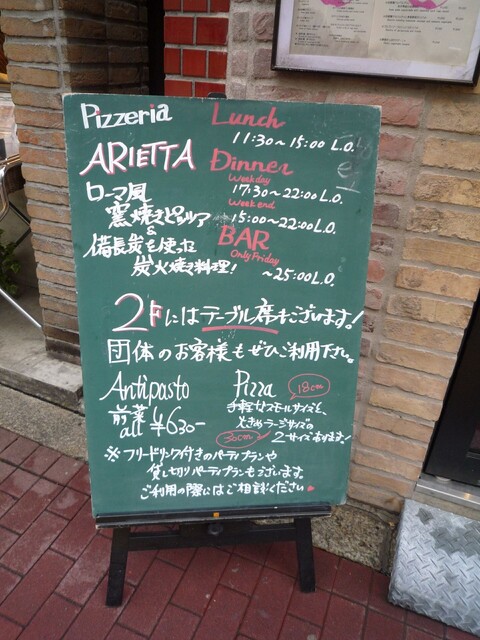 Pizzeria
ARIETTA
ローマ風
窯焼きピッツァ
&
備長炭を使った
炭火焼き料理!
Lunch
11:30〜15:00 L.O.
Dinner
Weekday
17:30〜22:00 L.O.
Weekend
15:00〜22:00 L.O.
BAR
Only Friday
〜25:00 L.O.
2Fにはテーブル席もございます!
団体のお客様もぜひご利用下さい。
Antipasto
前菜
all ¥630-
Pizza
18cm
手軽なスモールサイズと、
大きめラージサイズの
30cm
2サイズあります!
※フリードリンク付きのパーティプランや
貸し切りパーティプランもございます。
ご利用の際にはご相談ください